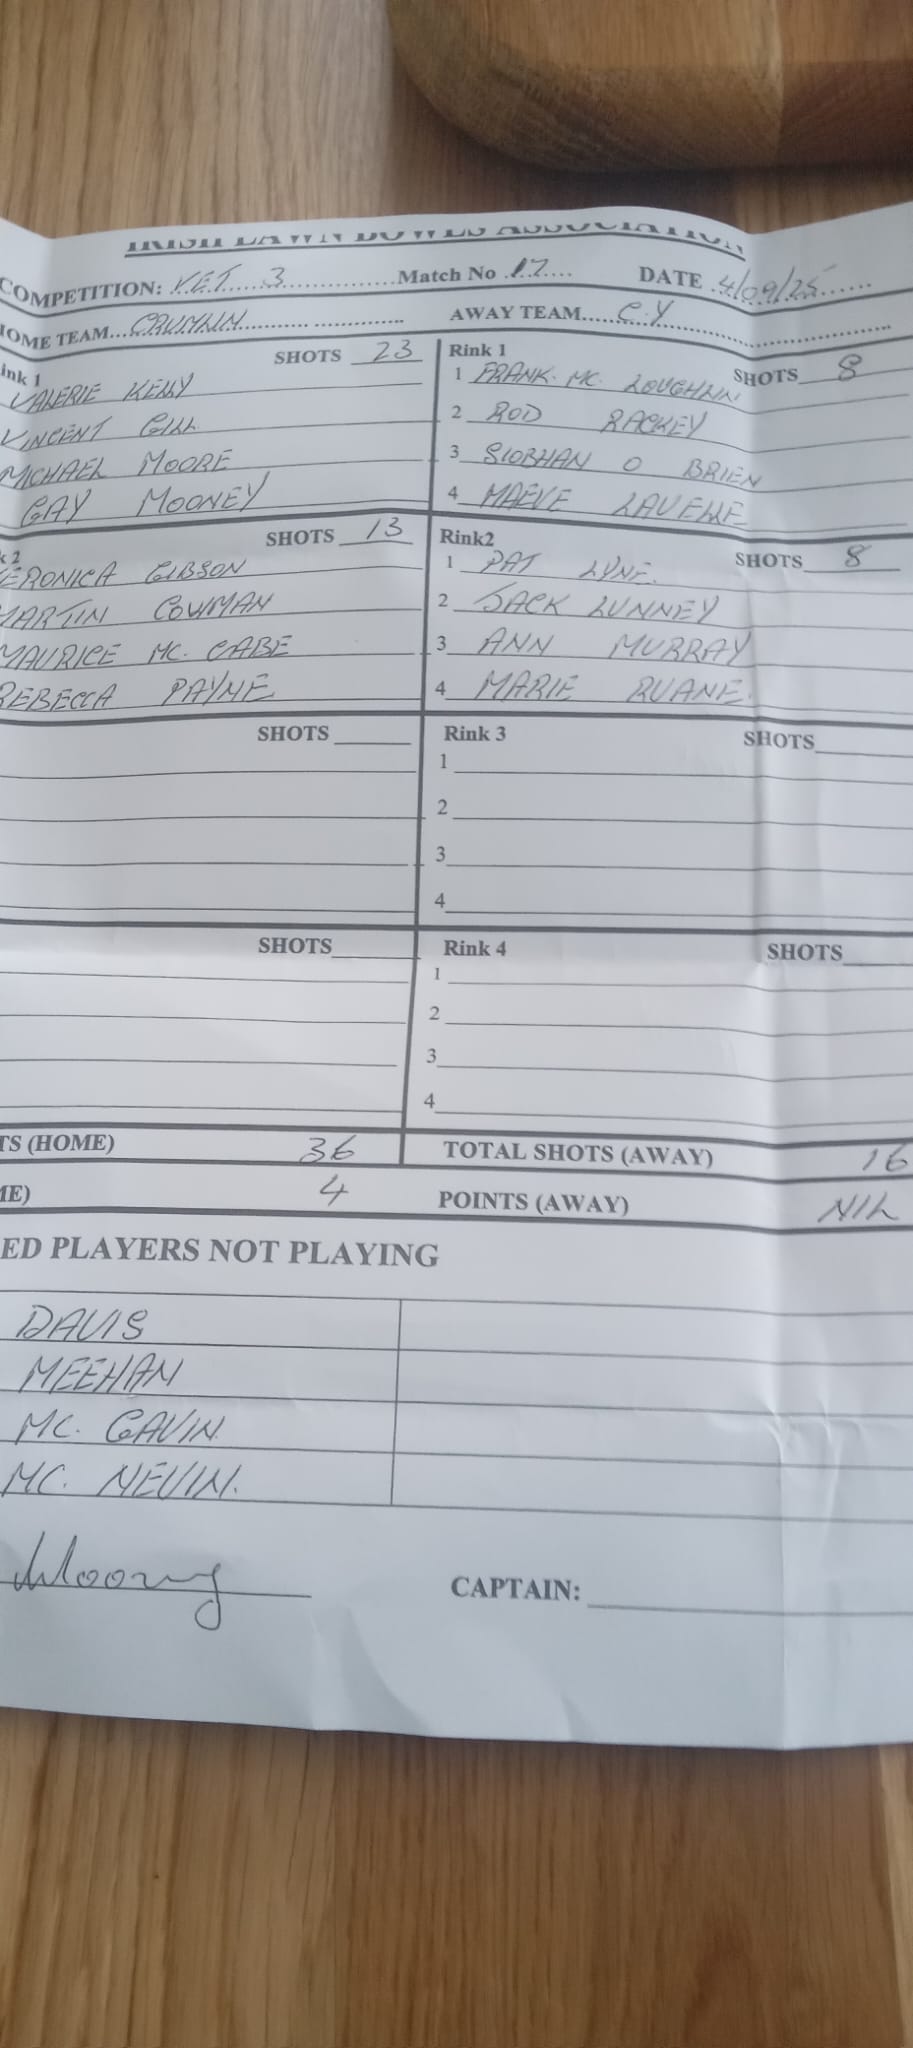 IRISH LAWN BOWLS ASSOCIATION
COMPETITION: VET 3 Match No 17 DATE 4/09/25
HOME TEAM CRUMLIN AWAY TEAM C.Y
Rink 1 SHOTS 23
VALERIE KELLY
VINCENT GILL
MICHAEL MOORE
GAY MOONEY
Rink 1 SHOTS 8
1 FRANK. MC. LOUGHLIN
2 ROD RACKEY
3 SIOBHAN O BRIEN
4 MAEVE LAVELLE
k 2 SHOTS 13
VERONICA GIBSON
MARTIN COWMAN
MAURICE MC. CABE
REBECCA PAYNE
Rink2 SHOTS 8
1 PAT LYNE.
2 JACK LUNNEY
3 ANN MURRAY
4 MARIE RUANE.
SHOTS
Rink 3 SHOTS
1
2
3
4
SHOTS
Rink 4 SHOTS
1
2
3
4
TS (HOME) 36 TOTAL SHOTS (AWAY) 16
ME) 4 POINTS (AWAY) NIL
ED PLAYERS NOT PLAYING
DAVIS
MEEHAN
MC. GAVIN
MC. NEVIN.
Mooney CAPTAIN: